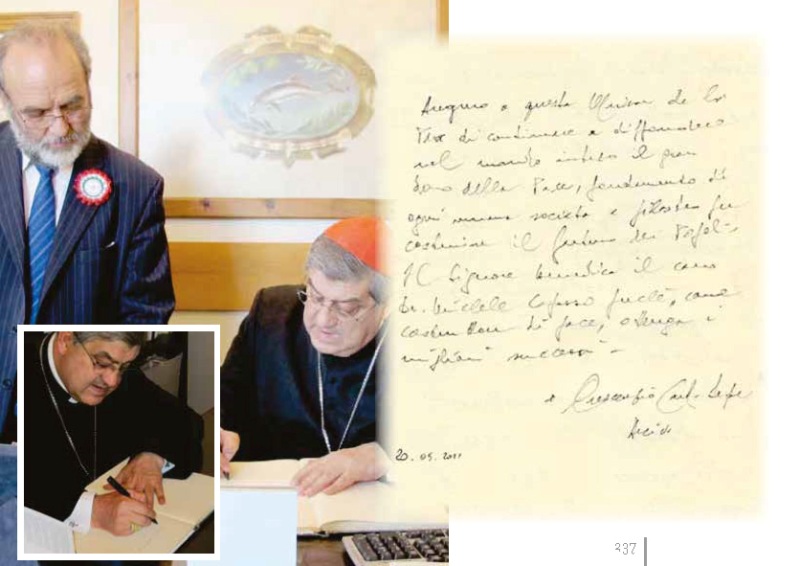 Auguro a questa Mission de la
Pax di continuare a diffondere
nel mondo intero il gran
dono della Pace, fondamento di
ogni umana società e per
costruire il futuro dei Popoli.
Il Signore benedica il caro
Dr. Michele Capasso perché, come
costruttore di pace, ottenga i
migliori successi.
+ Crescenzio Card. Sepe
20.05.2011
337